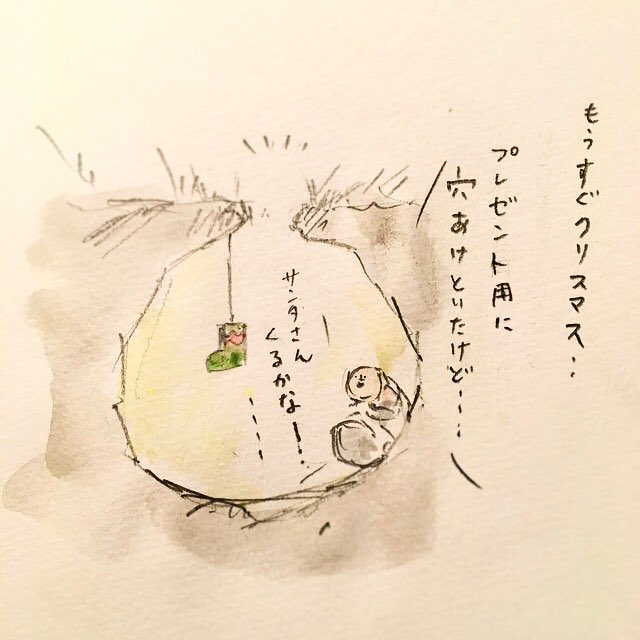 もうすぐクリスマス..
プレゼント用に
穴あけといたけど...
サンタさん
くるかなー